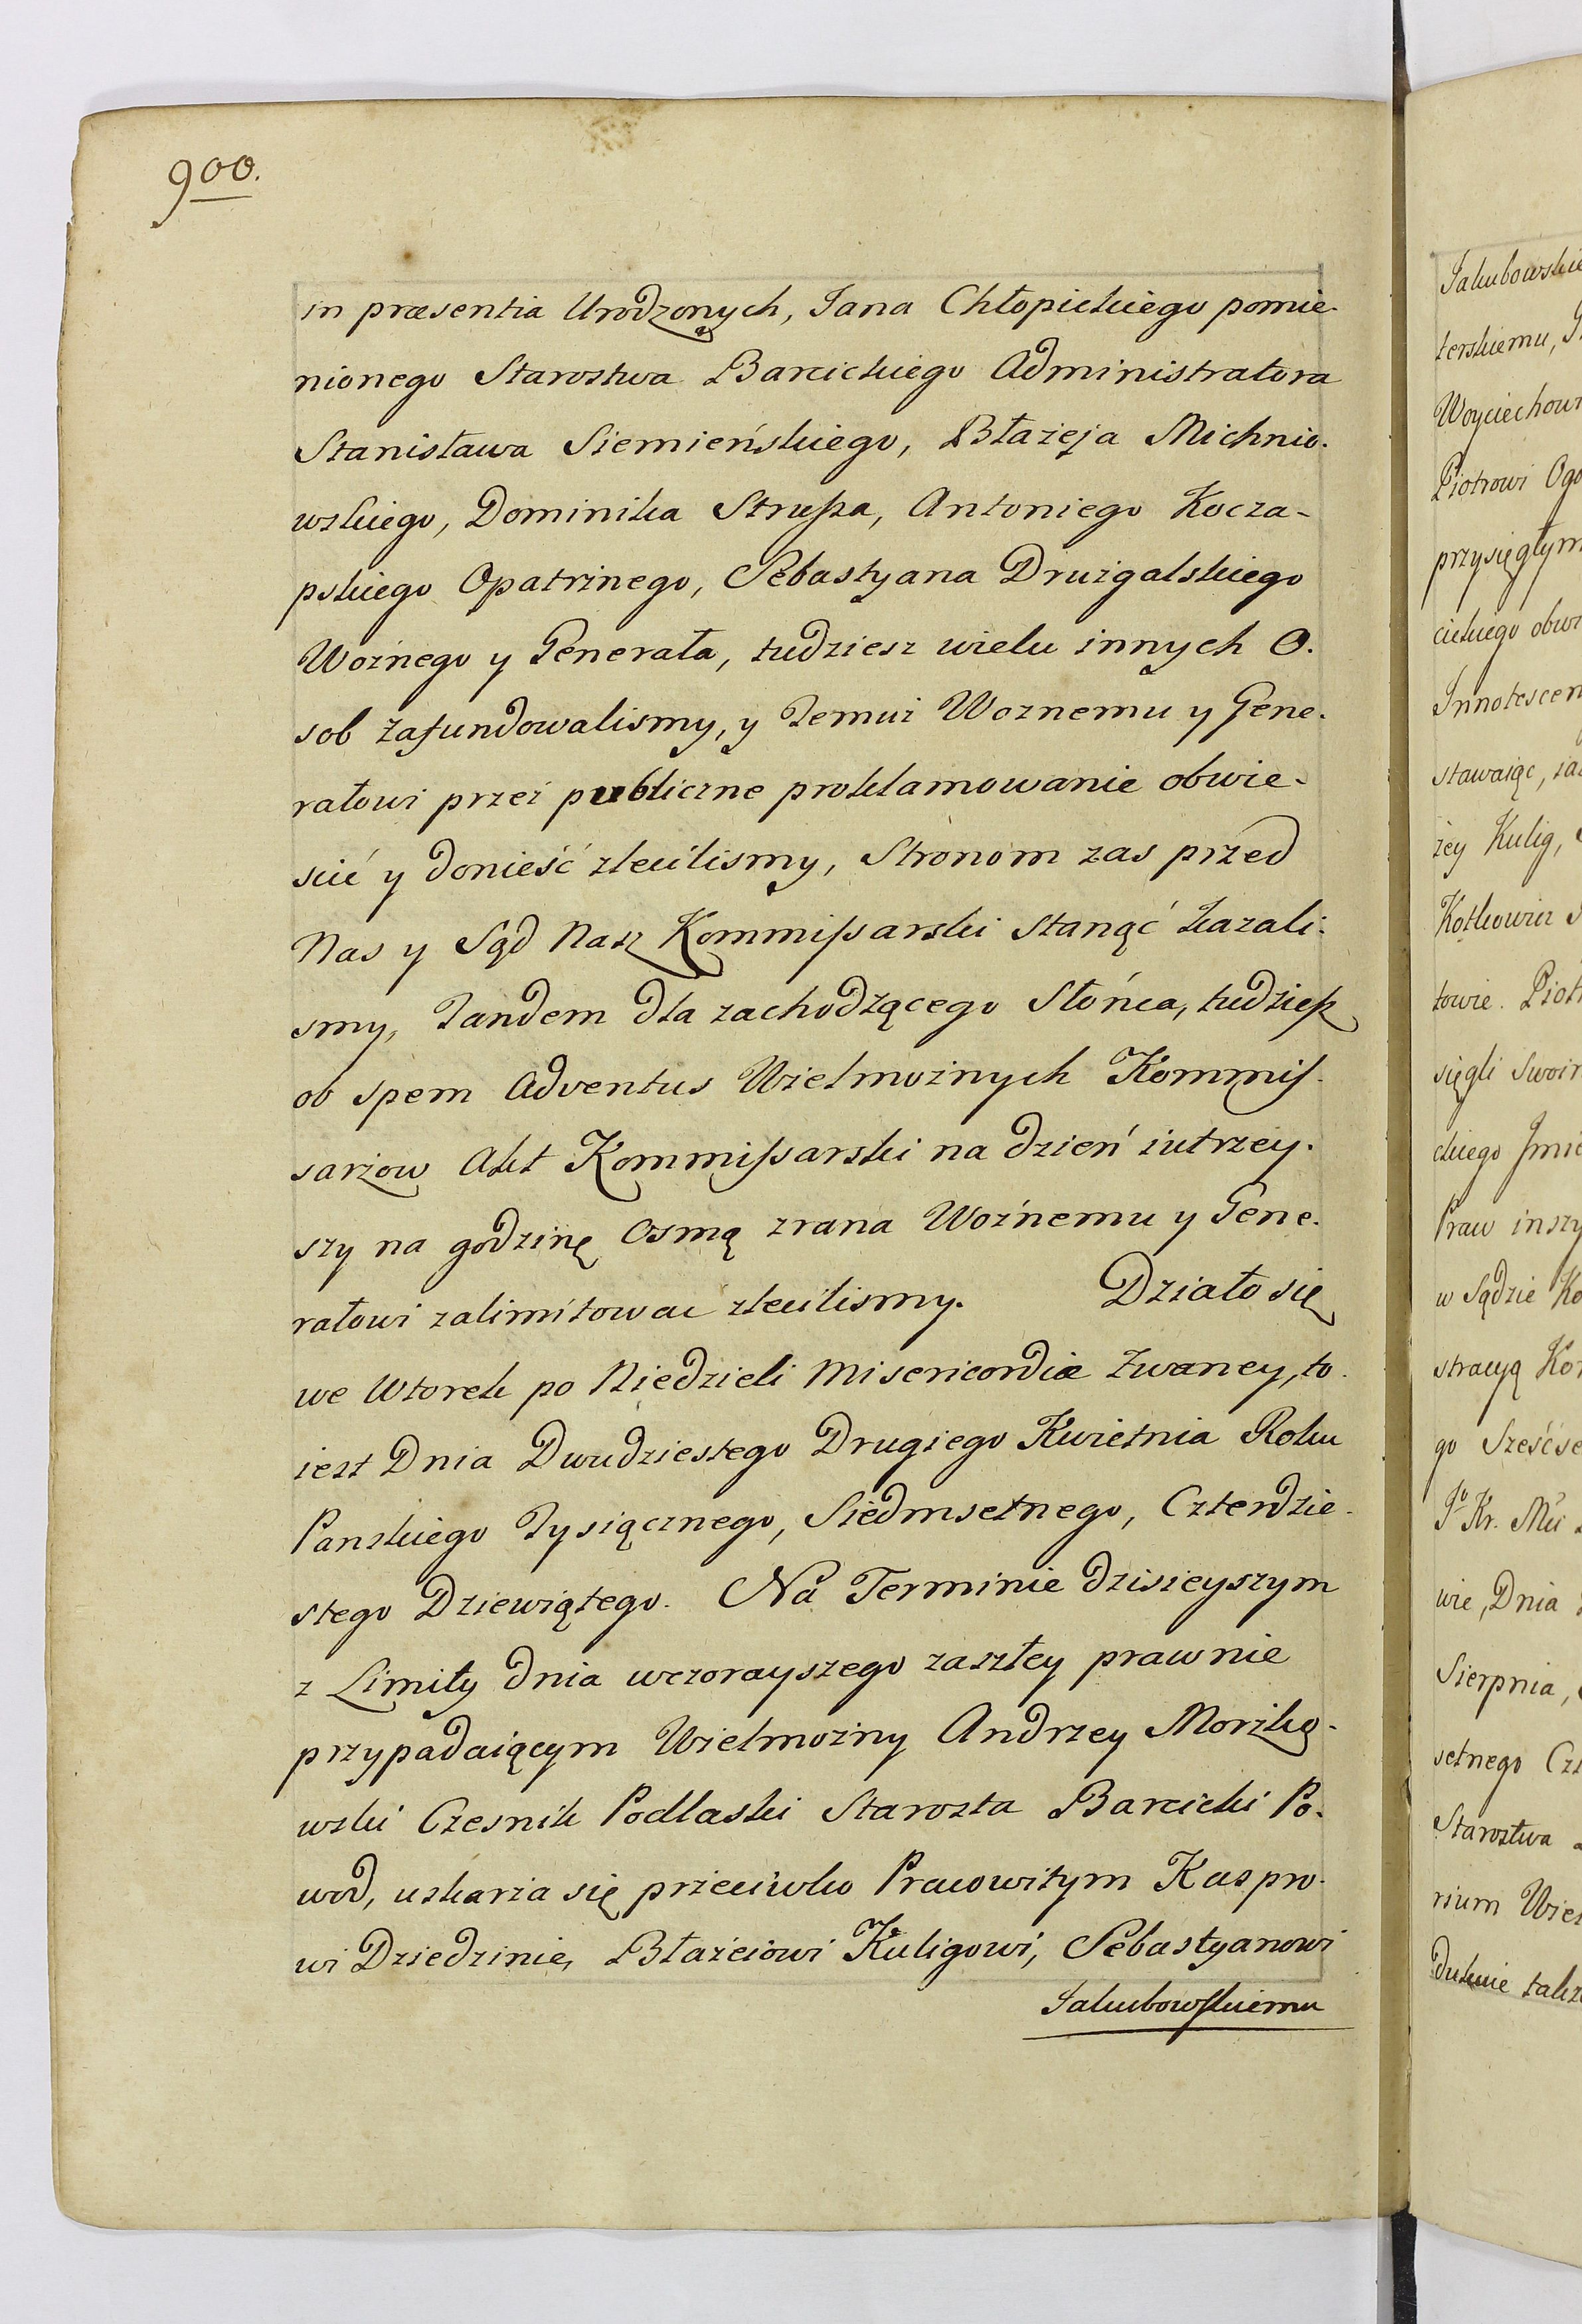 900.
in præsentia Urodzonych, Jana Chłopickiego pomie-
nionego Starostwa Barcickiego Administratora
Stanisława Siemieńskiego, Błażeja Michnio-
wskiego, Dominika Strußa, Antoniego Kocza-
pskiego Opatrznego, Sebastyana Druzgalskiego
Woźnego y Generała, tudziesz wielu innych O-
sob zafundowalismy, y Temuż Woznemu y Gene-
rałowi przez publiczne proklamowanie obwie-
scić y donieść zlecilismy, Stronom zas przed
Nas y Sąd Nasz Kommißarski Stanąć kazali-
smy, Tandem dla zachodzącego Słońca, tudzieß
ob spem Adventus Wielmożnych Kommis-
sarzow Akt Kommißarski na dzień iutrzey-
szy na godzinę osmą zrana Woźnemu y Gene-
rałowi zalimitowac zlecilismy. Działo się
we Wtorek po Niedzieli Misericordiæ zwaney, to
iest Dnia Dwudziestego Drugiego Kwietnia Roku
Panskiego Tysiącznego, Siedmsetnego, Czterdzie-
stego Dziewiątego. Na Terminie dzisieyszym
z Limity dnia wczorayszego zaszłey prawnie
przypadaiącym Wielmożny Andrzey Morzko-
wski Czesnik Podlaski Starosta Barcicki Po-
wod, uskarza się przeciwko Pracowitym Kaspro-
wi Dziedzinie, Błażeiowi Kuligowi, Sebastyanowi
Jakubowskiemu
Jakubowskie
terskiemu,
Woyciechow
Piotrowi Ogo
przysięgłym
cickiego obw
Innotescen
stawaiąc, za
żey Kulig,
Kotkowicz
towie. Piot
sięgli Swoi
ckiego Jmie
Praw inszy
w Sądzie Ko
stracyą Ko
go Sześćse
wie, Dnia
Sierpnia,
setnego Cz
Starostwa
rium Wie